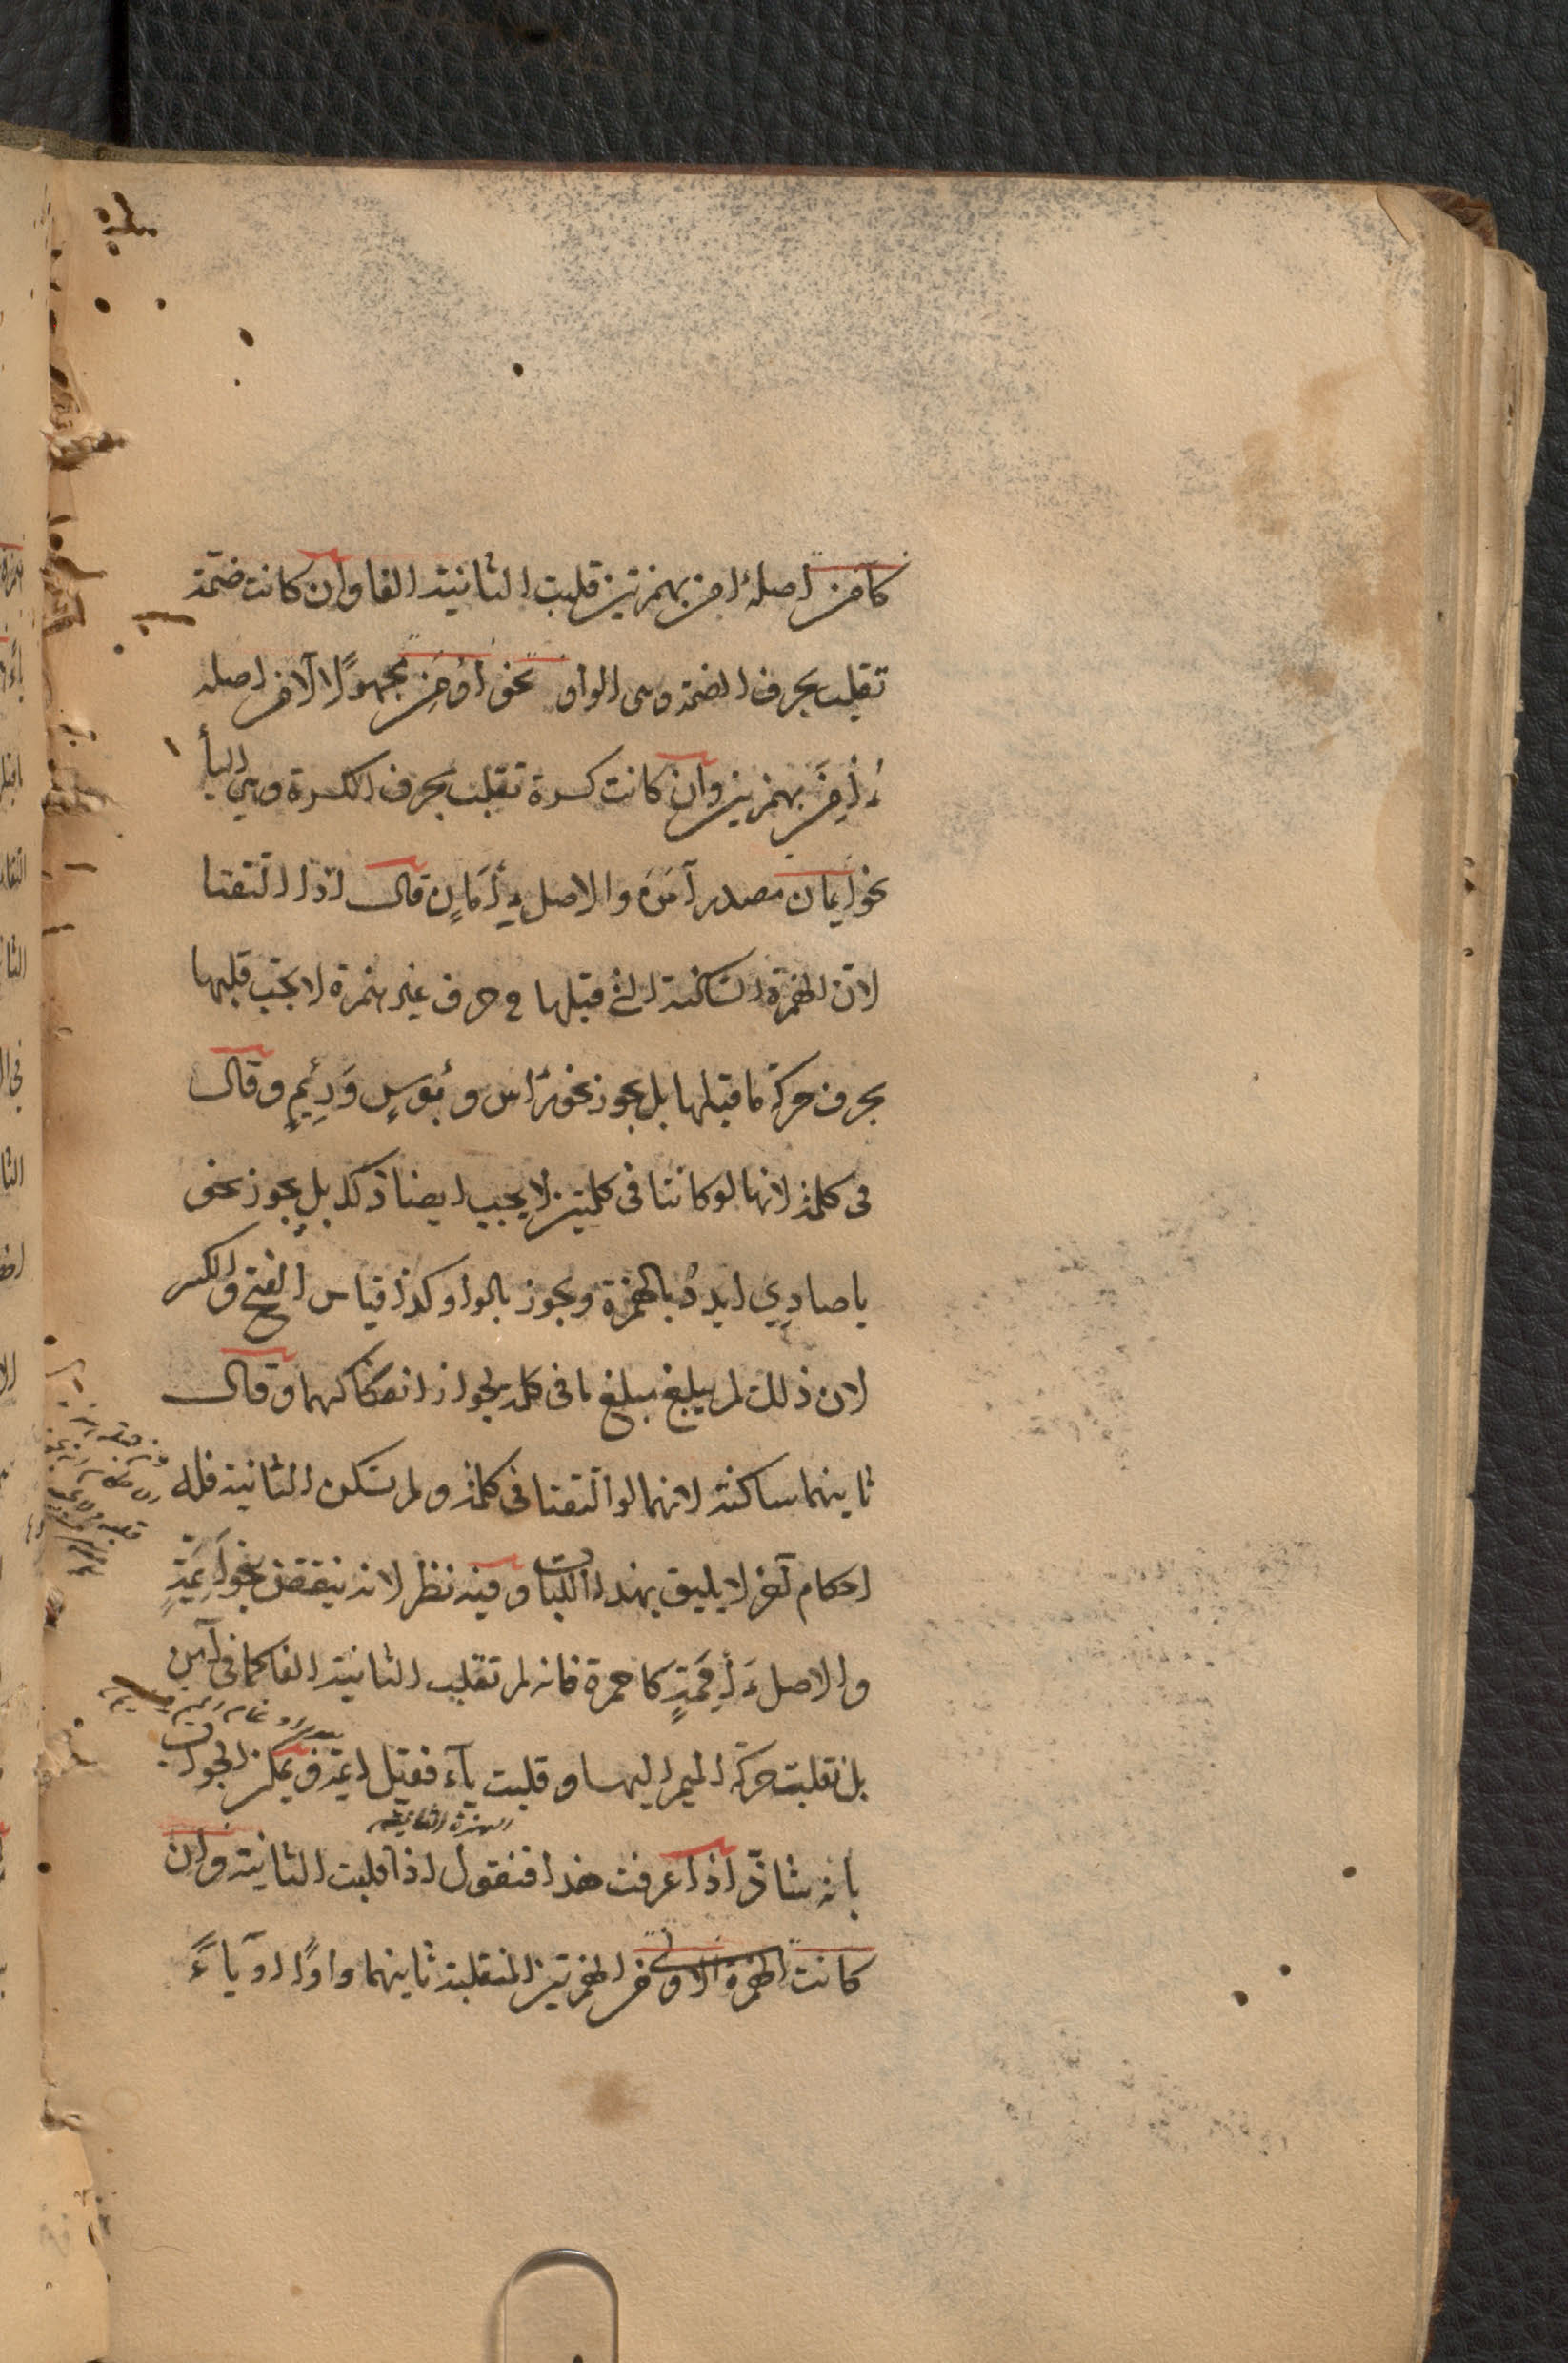 كآمن اصلهٔ اءمن بهمزتين قلبت الثانية الفا وان كانت ضمّة
تقلب بحرف الضمة وهى الواو نحو اُوْمِن مجهولًا لآمن اصله
ءُأْمِنَ بهمزتين وان كانت كسرة تقلب بحرف الكسرة وهي اليأ
نحو اِيمان مصدر آمَنَ والاصل ءِأْمَانٍ قال اذا التقتا
لانّ الهمزة السّاكنة التى قبلها حرف غير همزة لا يجب قلبها
بحرف حركة ما قبلها بل يجوز نحو رأس و بُؤسٍ وَرِئْيمٍ وقال
فى كلمة لانها لو كانتا فى كلمتين لا يجب ايضا ذلك بل يجوز نحو
يا صادِى ايددُ بالهمزة ويجوز بالواو كذا قياس الفتح والكسر
لان ذلك لم يبلغ مبلغ ما فى كلمة لجواز انفكاكهما وقال
ثانيهما ساكنة لانهما لو التقتا فى كلمة ولم تسكن الثانية فله
احكام آخر لا يليق بهذا الكتاب وفيه نظر لانه ينتقض بنحو اَيِمَّةٍ
والاصل ءَأْمِمَةٍ كاحمرة فانه لم تقلب الثانية الفا كما فى آمن
بل نقلت حركة الميم اليها وقلبت يآء فقيل ايمة ويمكن الجواب
الهمزة الثانية
بانه شاذّ اذا عرفت هذا فنقول اذا قلبت الثانية وان
كانت الهمزة الاولى من الهمزتين المنقلبة ثانيهما واوًا او ياءً